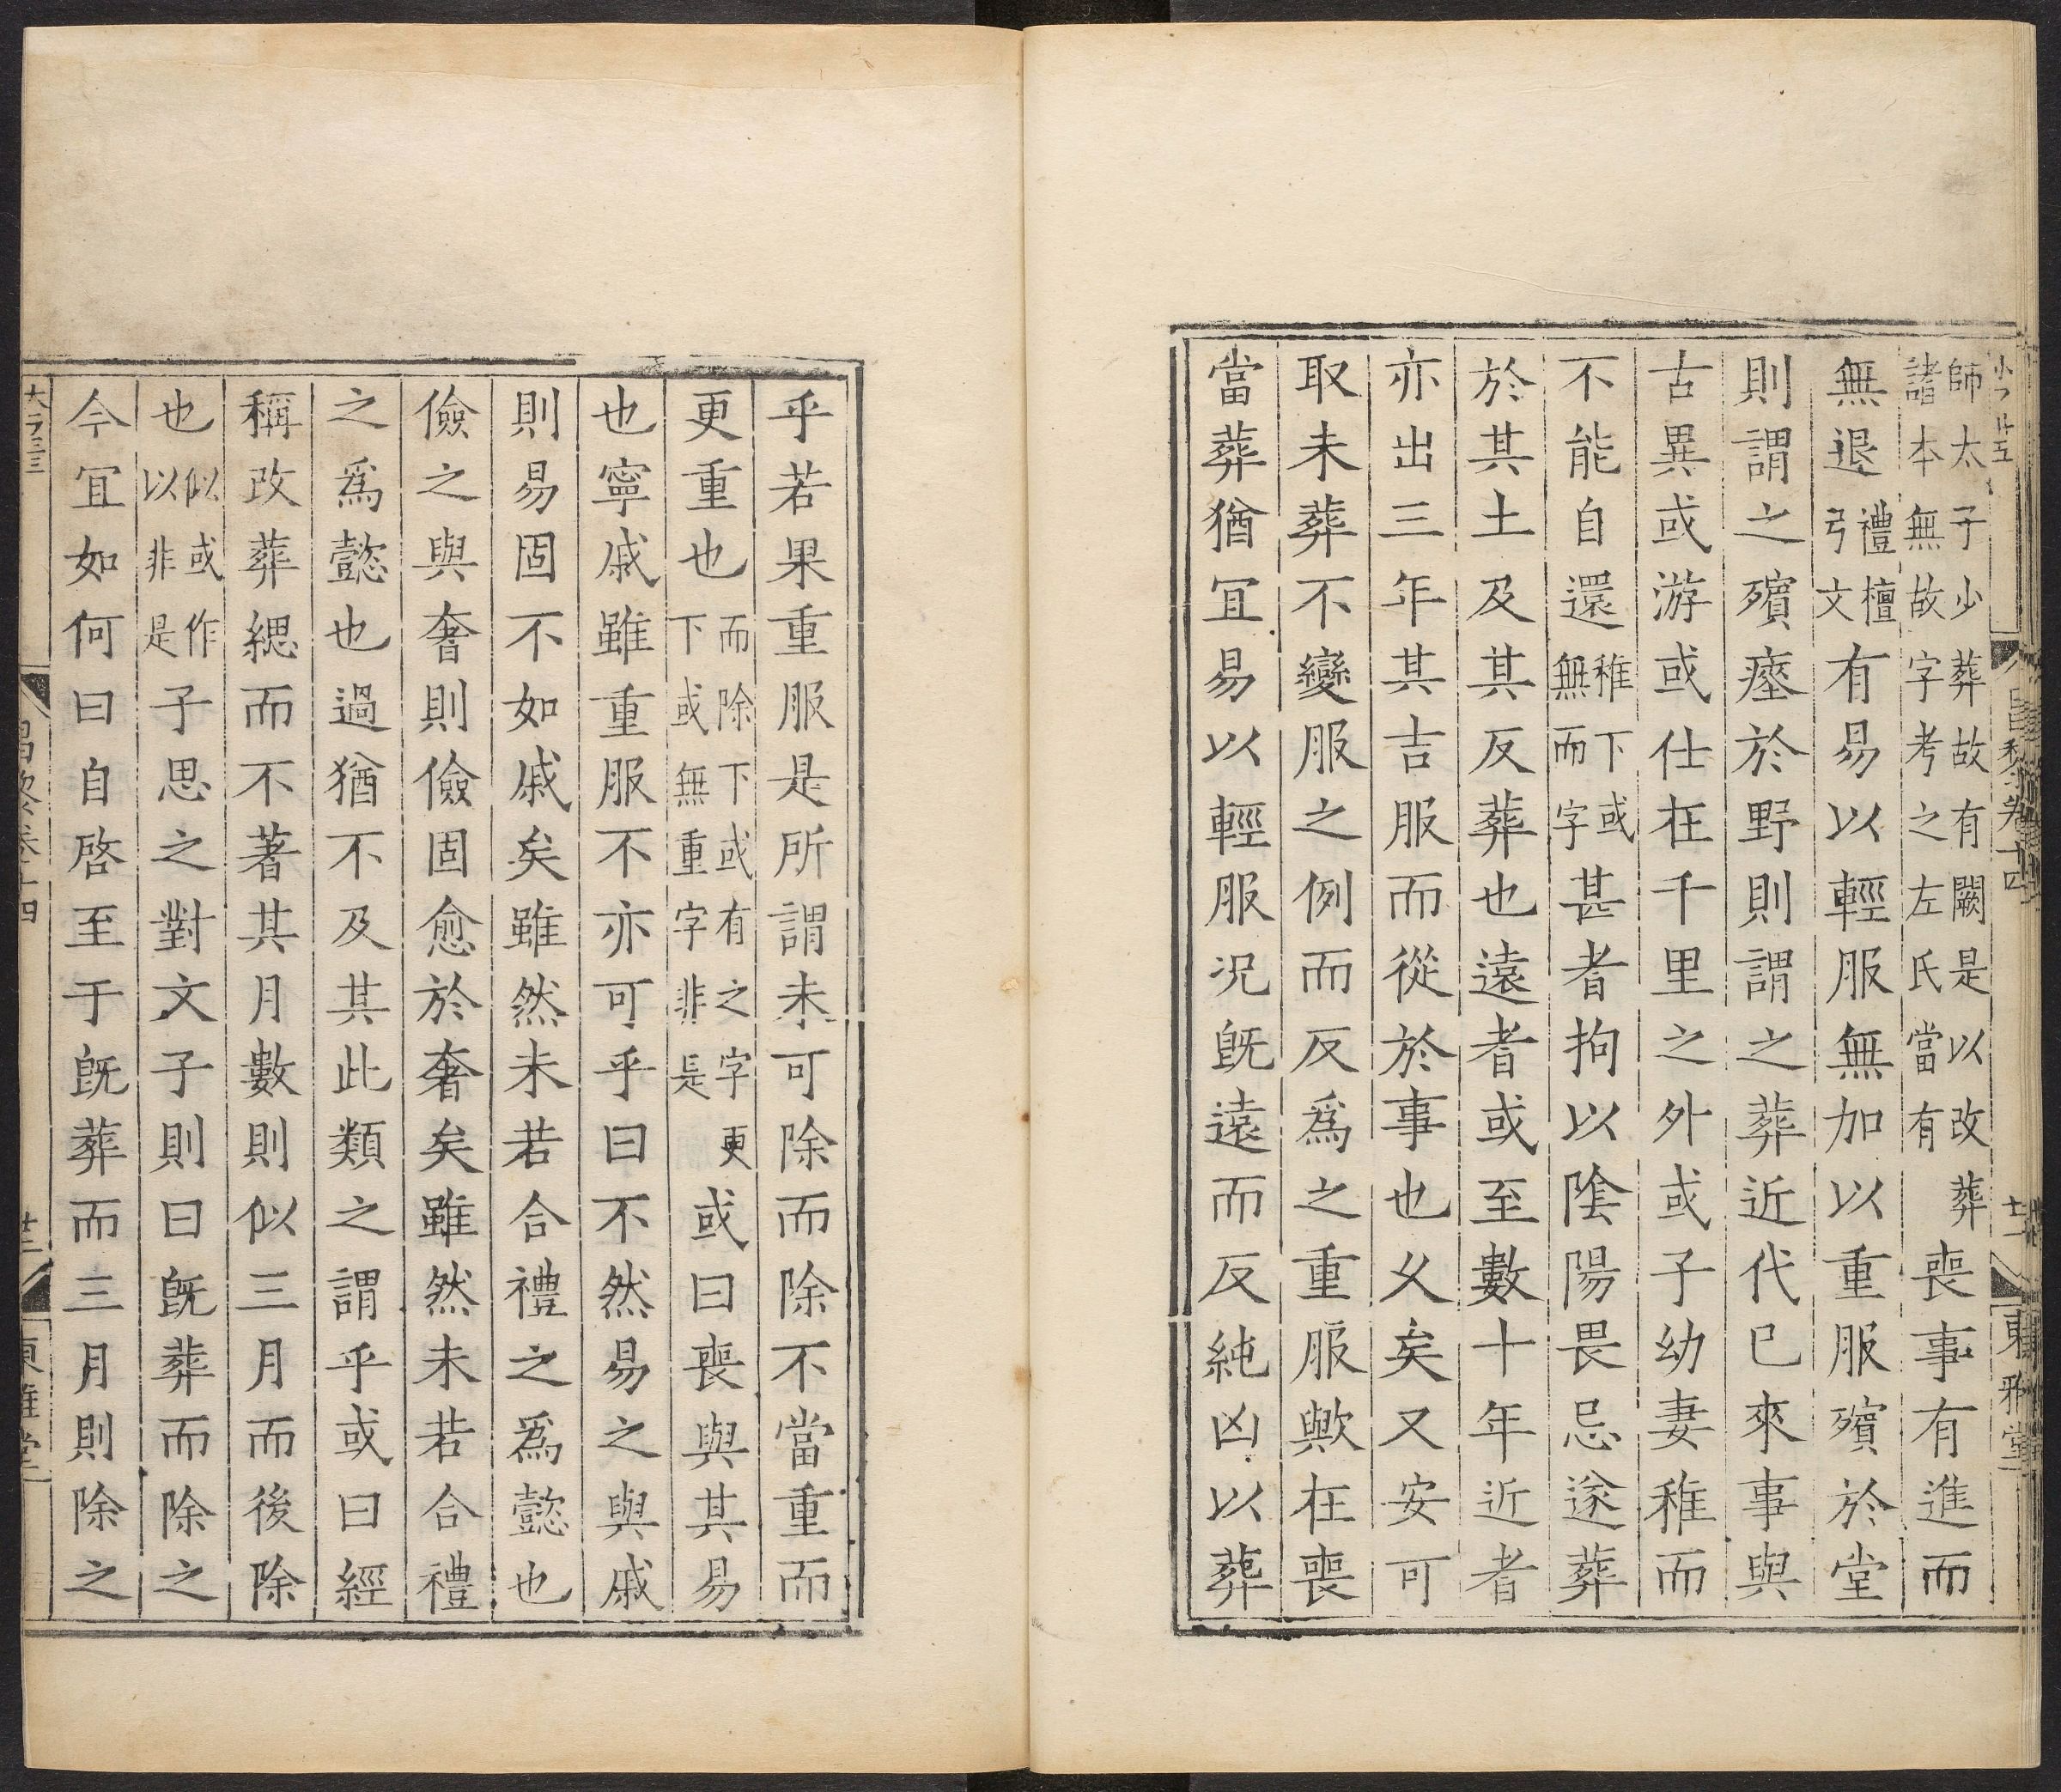 昌黎卷十四 東雅堂
師太子少葬故有闕是以改葬諸本無故字考之左氏當有喪事有進而
無退禮檀弓文有易以輕服無加以重服殯於堂
則謂之殯瘞於野則謂之葬近代巳來事與
古異或游或仕在千里之外或子幼妻稚而
不能自還稚下或無而字甚者拘以陰陽畏忌遂葬
於其土及其反葬也遠者或至數十年近者
亦出三年其吉服而從於事也乆矣又安可
取未葬不變服之例而反爲之重服歟在喪
當葬猶冝易以輕服况旣遠而反純凶以葬
乎若果重服是所謂未可除而除不當重而
更重也而除下或有之字更下或無重字非是或曰喪與其易
也寧戚雖重服不亦可乎曰不然易之與戚
則易固不如戚矣雖然未若合禮之爲懿也
儉之與奢則儉固愈於奢矣雖然未若合禮
之爲懿也過猶不及其此類之謂乎或曰經
稱改葬緦而不著其月數則似三月而後除
也似或作以非是子思之對文子則曰旣葬而除之
今冝如何曰自啓至于旣葬而三月則除之
昌黎卷十四 十二 東雅堂